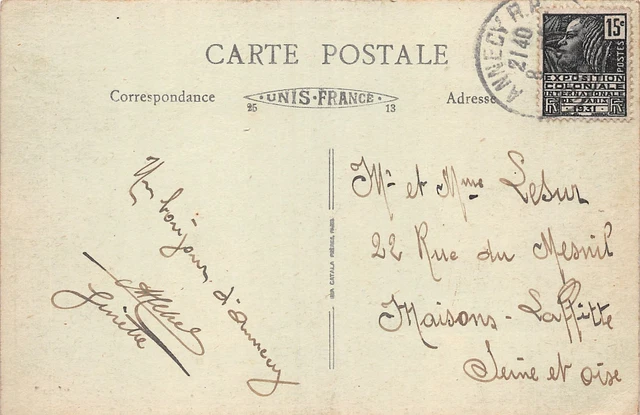 CARTE POSTALE
Correspondance
UNIS-FRANCE
25 13
Adresse
ANNECY R.P.
2140
8
15c
POSTES
EXPOSITION
COLONIALE
INTERNATIONALE
DE PARIS
RF 1931 RF
Un bonjour d'Annecy
Ginette
CATALA FRÈRES, PARIS
Mr et Mme Lesur
22 Rue du Mesnil
Maisons-Laffitte
Seine et oise